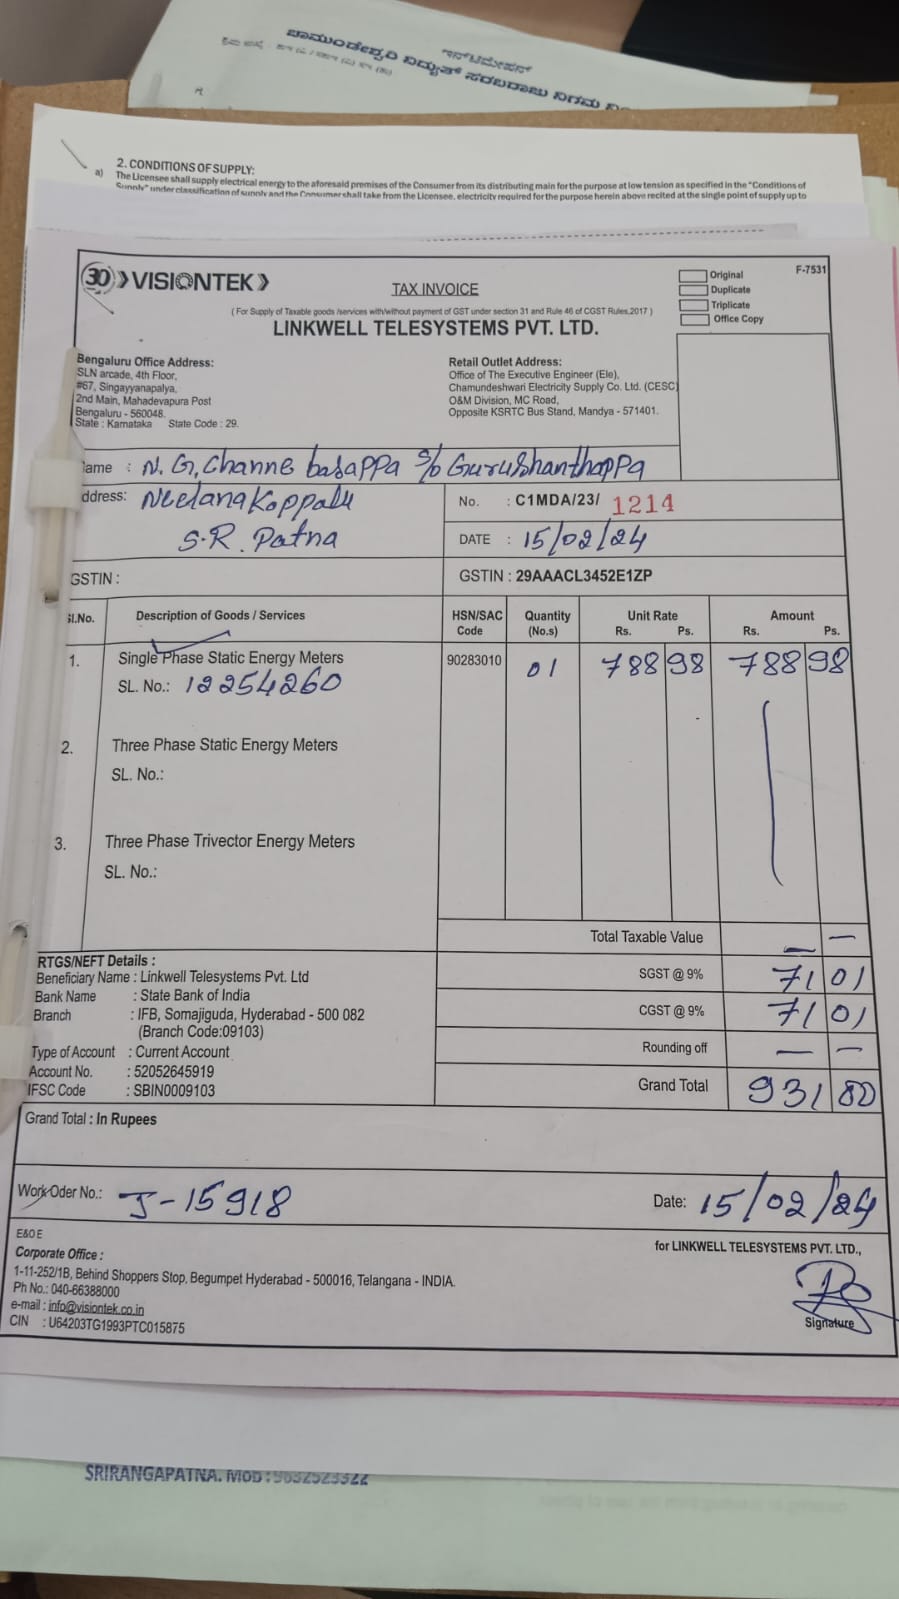 ಇನ್‌ಟಿಮೇಷನ್
ಚಾಮುಂಡೇಶ್ವರಿ ವಿದ್ಯುತ್ ಸರಬರಾಜು ನಿಗಮ
2. CONDITIONS OF SUPPLY:
a) The Licensee shall supply electrical energy to the aforesaid premises of the Consumer from its distributing main for the purpose at low tension as specified in the "Conditions of
Supply" under classification of supply and the Consumer shall take from the Licensee, electricity required for the purpose herein above recited at the single point of supply up to
30 VISIONTEK
TAX INVOICE
Original
Duplicate
Triplicate
Office Copy
F-7531
( For Supply of Taxable goods /services with/without payment of GST under section 31 and Rule 46 of CGST Rules,2017 )
LINKWELL TELESYSTEMS PVT. LTD.
Bengaluru Office Address:
SLN arcade, 4th Floor,
#67, Singayyanapalya,
2nd Main, Mahadevapura Post
Bengaluru - 560048.
State : Karnataka State Code : 29.
Retail Outlet Address:
Office of The Executive Engineer (Ele),
Chamundeshwari Electricity Supply Co. Ltd. (CESC)
O&M Division, MC Road,
Opposite KSRTC Bus Stand, Mandya - 571401.
ame : N. G. Channe basappa S/o Gurushanthappa
ddress: Neelanakoppalu
S.R. Patna
No. : C1MDA/23/ 1214
DATE : 15/02/24
GSTIN :
GSTIN : 29AAACL3452E1ZP
Sl.No. Description of Goods / Services HSN/SAC Code Quantity (No.s) Unit Rate Rs. Ps. Amount Rs. Ps.
1. Single Phase Static Energy Meters 90283010 01 788 98 788 98
SL. No.: 12254260
2. Three Phase Static Energy Meters
SL. No.:
3. Three Phase Trivector Energy Meters
SL. No.:
Total Taxable Value — —
RTGS/NEFT Details :
Beneficiary Name : Linkwell Telesystems Pvt. Ltd
Bank Name : State Bank of India
Branch : IFB, Somajiguda, Hyderabad - 500 082
(Branch Code:09103)
Type of Account : Current Account
Account No. : 52052645919
IFSC Code : SBIN0009103
SGST @ 9% 71 01
CGST @ 9% 71 01
Rounding off — —
Grand Total 931 00
Grand Total : In Rupees
Work Oder No.: J-15918
Date: 15/02/24
E&O E
Corporate Office :
1-11-252/1B, Behind Shoppers Stop, Begumpet Hyderabad - 500016, Telangana - INDIA.
Ph No.: 040-66388000
e-mail : info@visiontek.co.in
CIN : U64203TG1993PTC015875
for LINKWELL TELESYSTEMS PVT. LTD.,
Signature
SRIRANGAPATNA. MOB : 9632523322